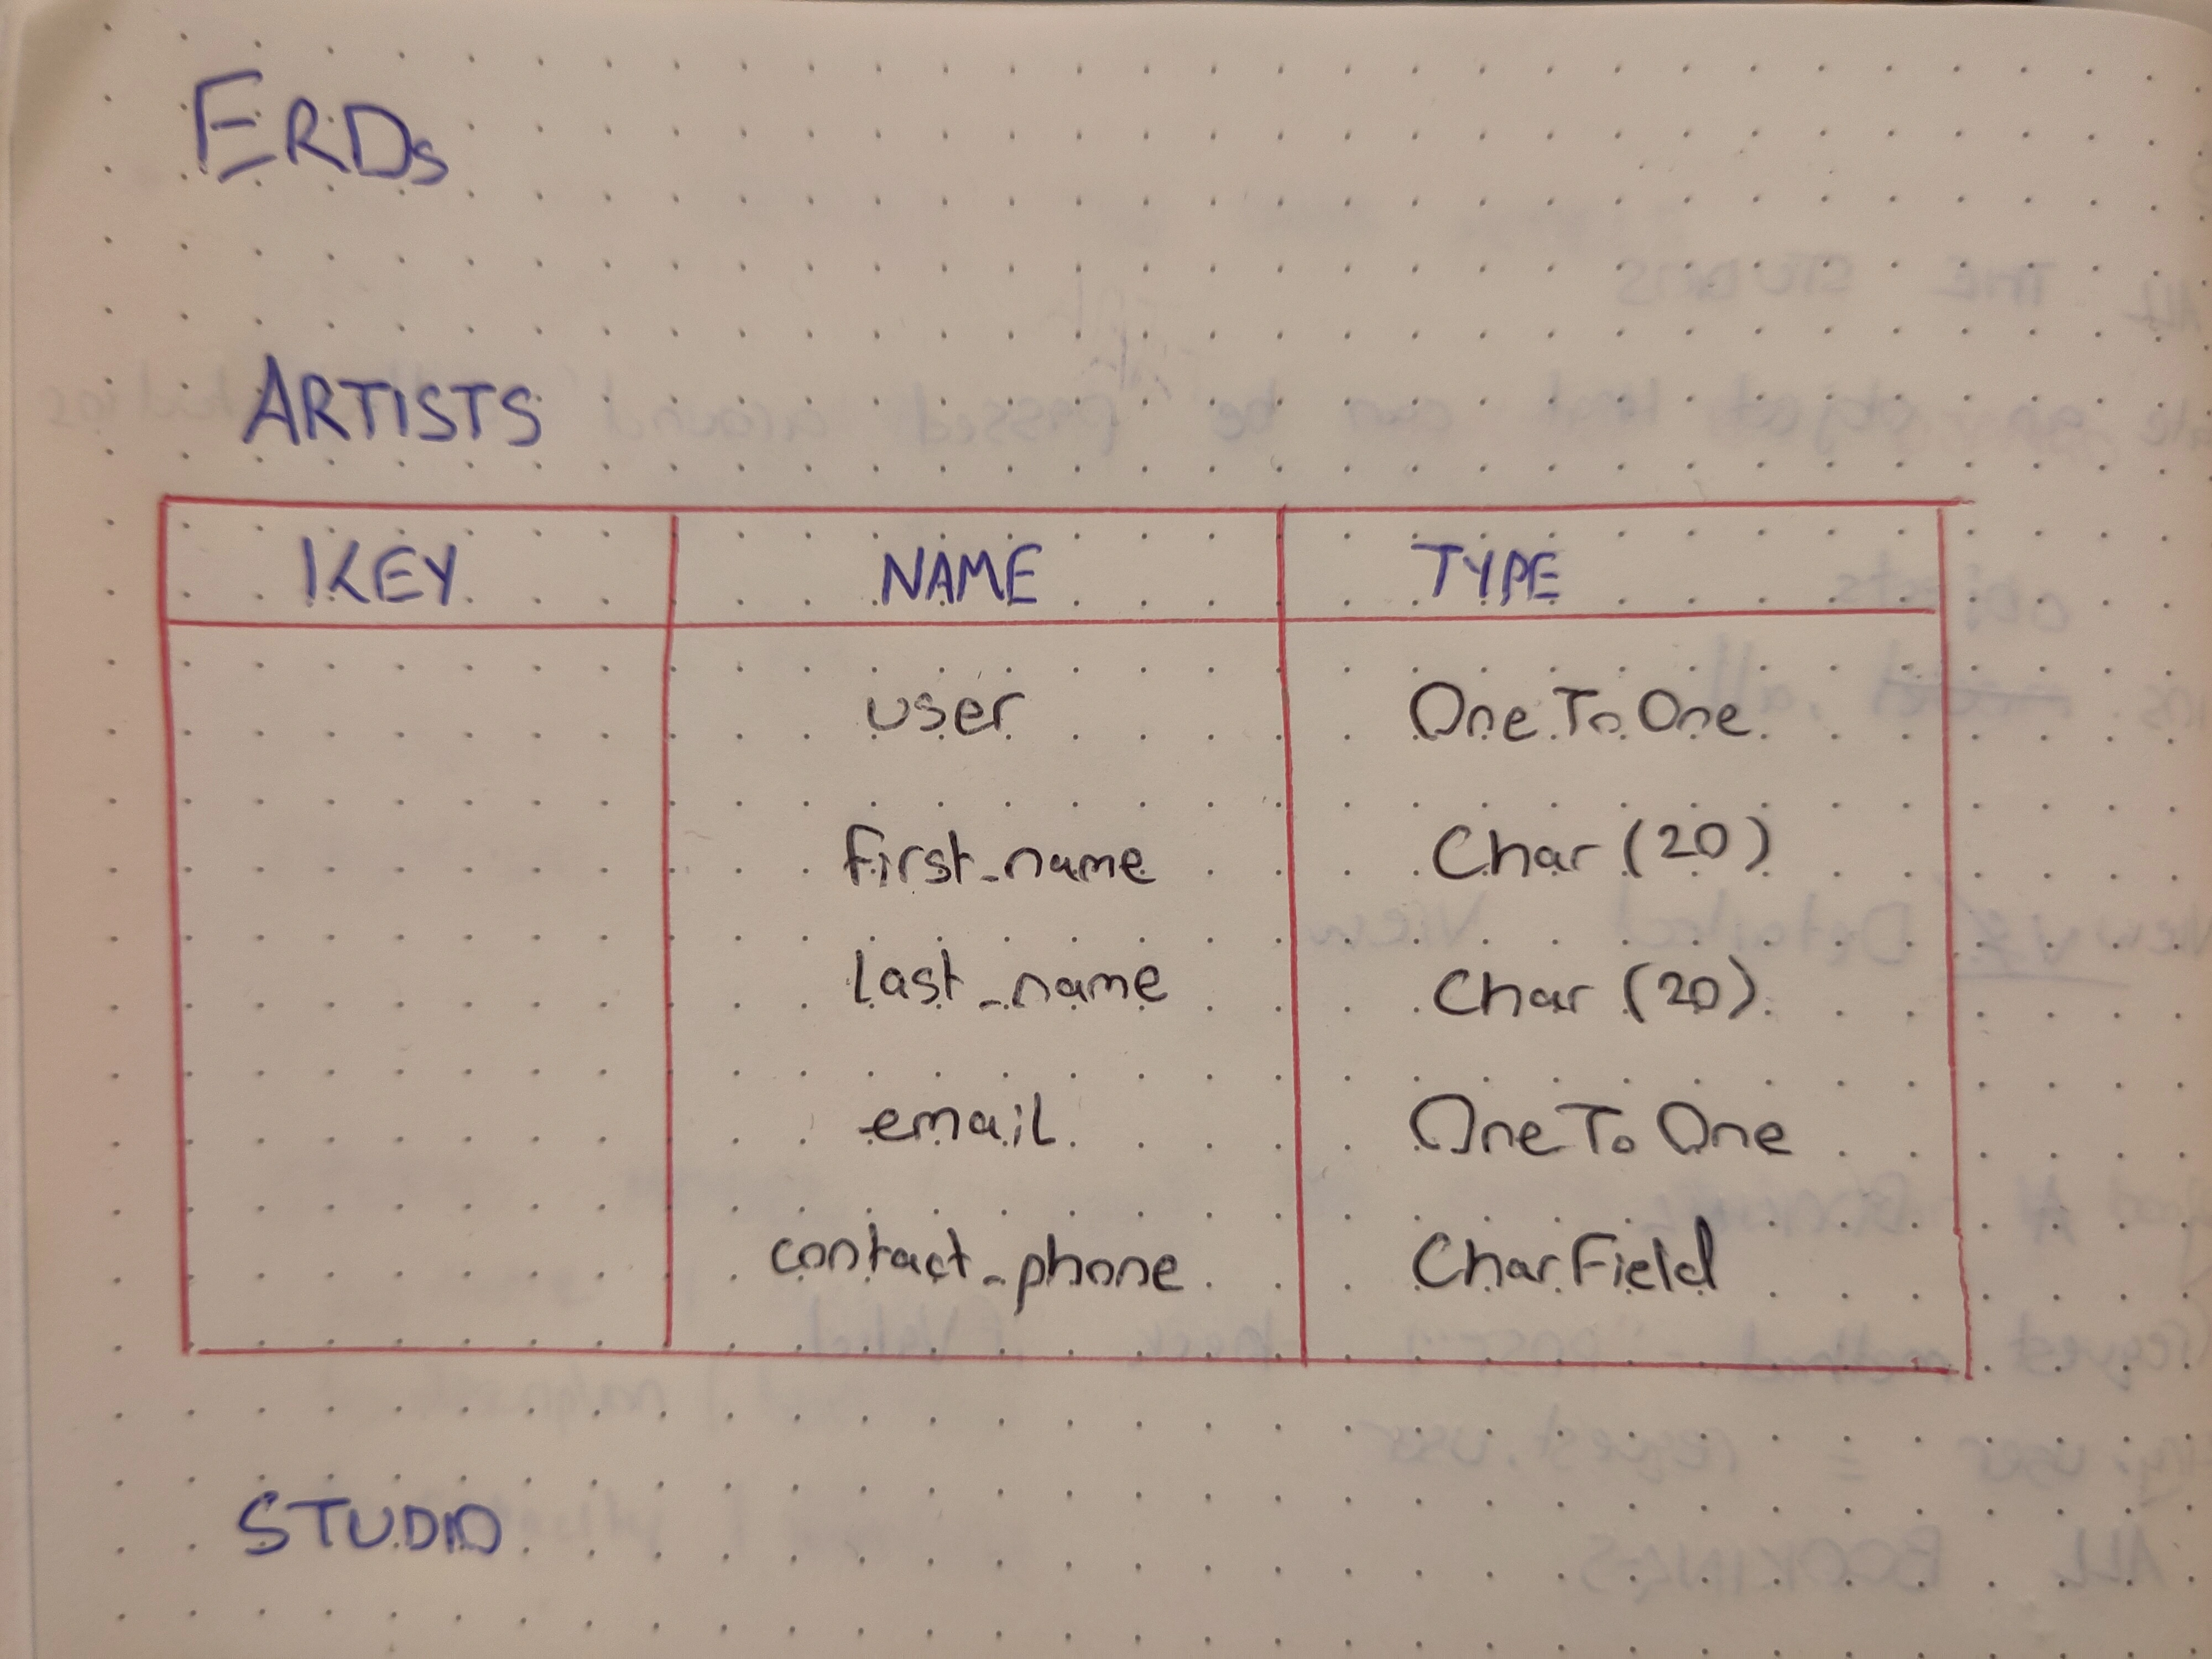 ERDs
ARTISTS
KEY NAME TYPE
user OneToOne
first_name Char (20)
last_name Char (20)
email OneToOne
contact_phone CharField
STUDIO